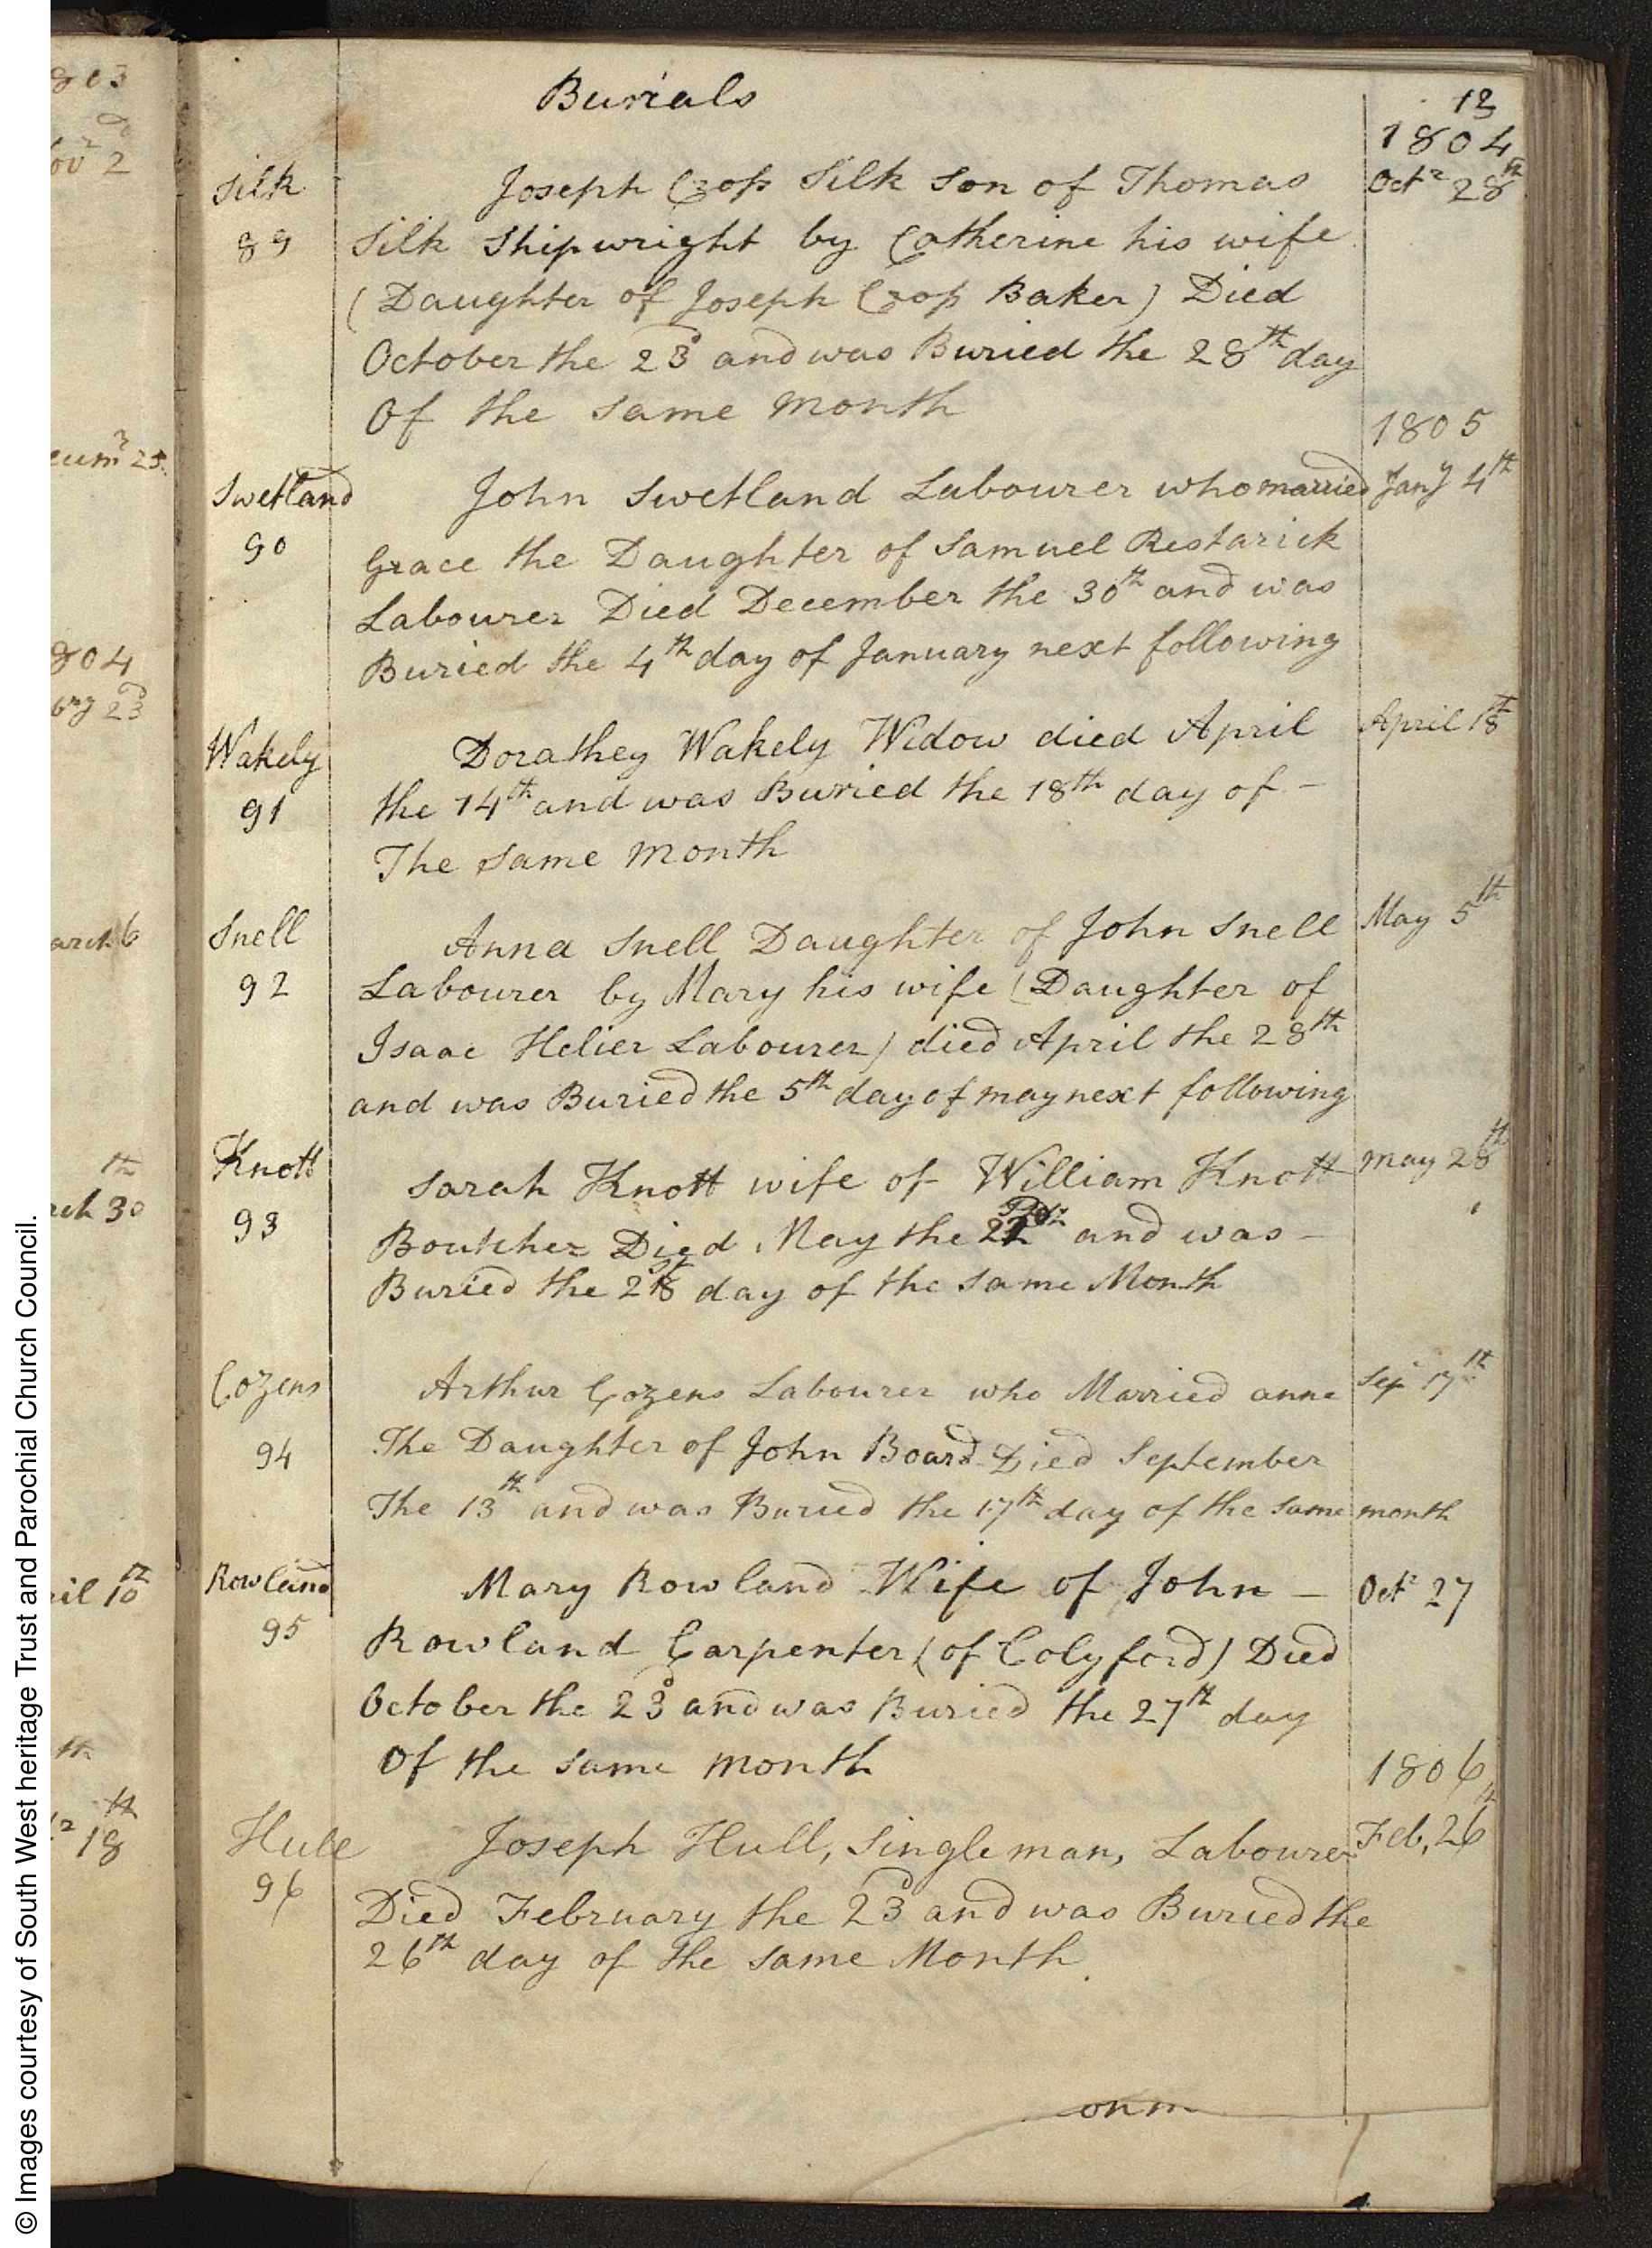 Burials
13
1804
Silk
89
Joseph Cross Silk Son of Thomas
Octr 28th
Silk Shipwright by Catherine his wife
(Daughter of Joseph Cross Baker) Died
October the 23d and was Buried the 28th day
Of the Same month
1805
Swetland
90
John Swetland Labourer who married
Jany 4th
Grace the Daughter of Samuel Restarick
Labourer Died December the 30th and was
Buried the 4th day of January next following
Wakely
91
Dorathey Wakely Widow died April
April 18th
the 14th and was Buried the 18th day of -
The Same month
Snell
92
Anna Snell Daughter of John Snell
May 5th
Labourer by Mary his wife (Daughter of
Isaac Helier Labourer) died April the 28th
and was Buried the 5th day of may next following
Knott
93
Sarah Knott wife of William Knott
may 28th
Boutcher Died May the and was -
Buried the day of the Same Month
Cozens
94
Arthur Cozens Labourer who Married anne
Sep 17th
The Daughter of John Board Died September
The 13th and was Buried the 17th day of the Same month
Rowland
95
Mary Rowland Wife of John -
Octr 27
Rowland Carpenter (of Colyford) Died
October the 23d and was Buried the 27th day
Of the Same month
1806
Hull
96
Joseph Hull, Singleman, Labourer
Feb, 26th
Died February the 23d and was Buried the
26th day of the Same Month.
803
ov 2
cumr 25
804
bry 23d
arch 6
th
rch 30
ril 10th
th
18th
© Images courtesy of South West heritage Trust and Parochial Church Council.